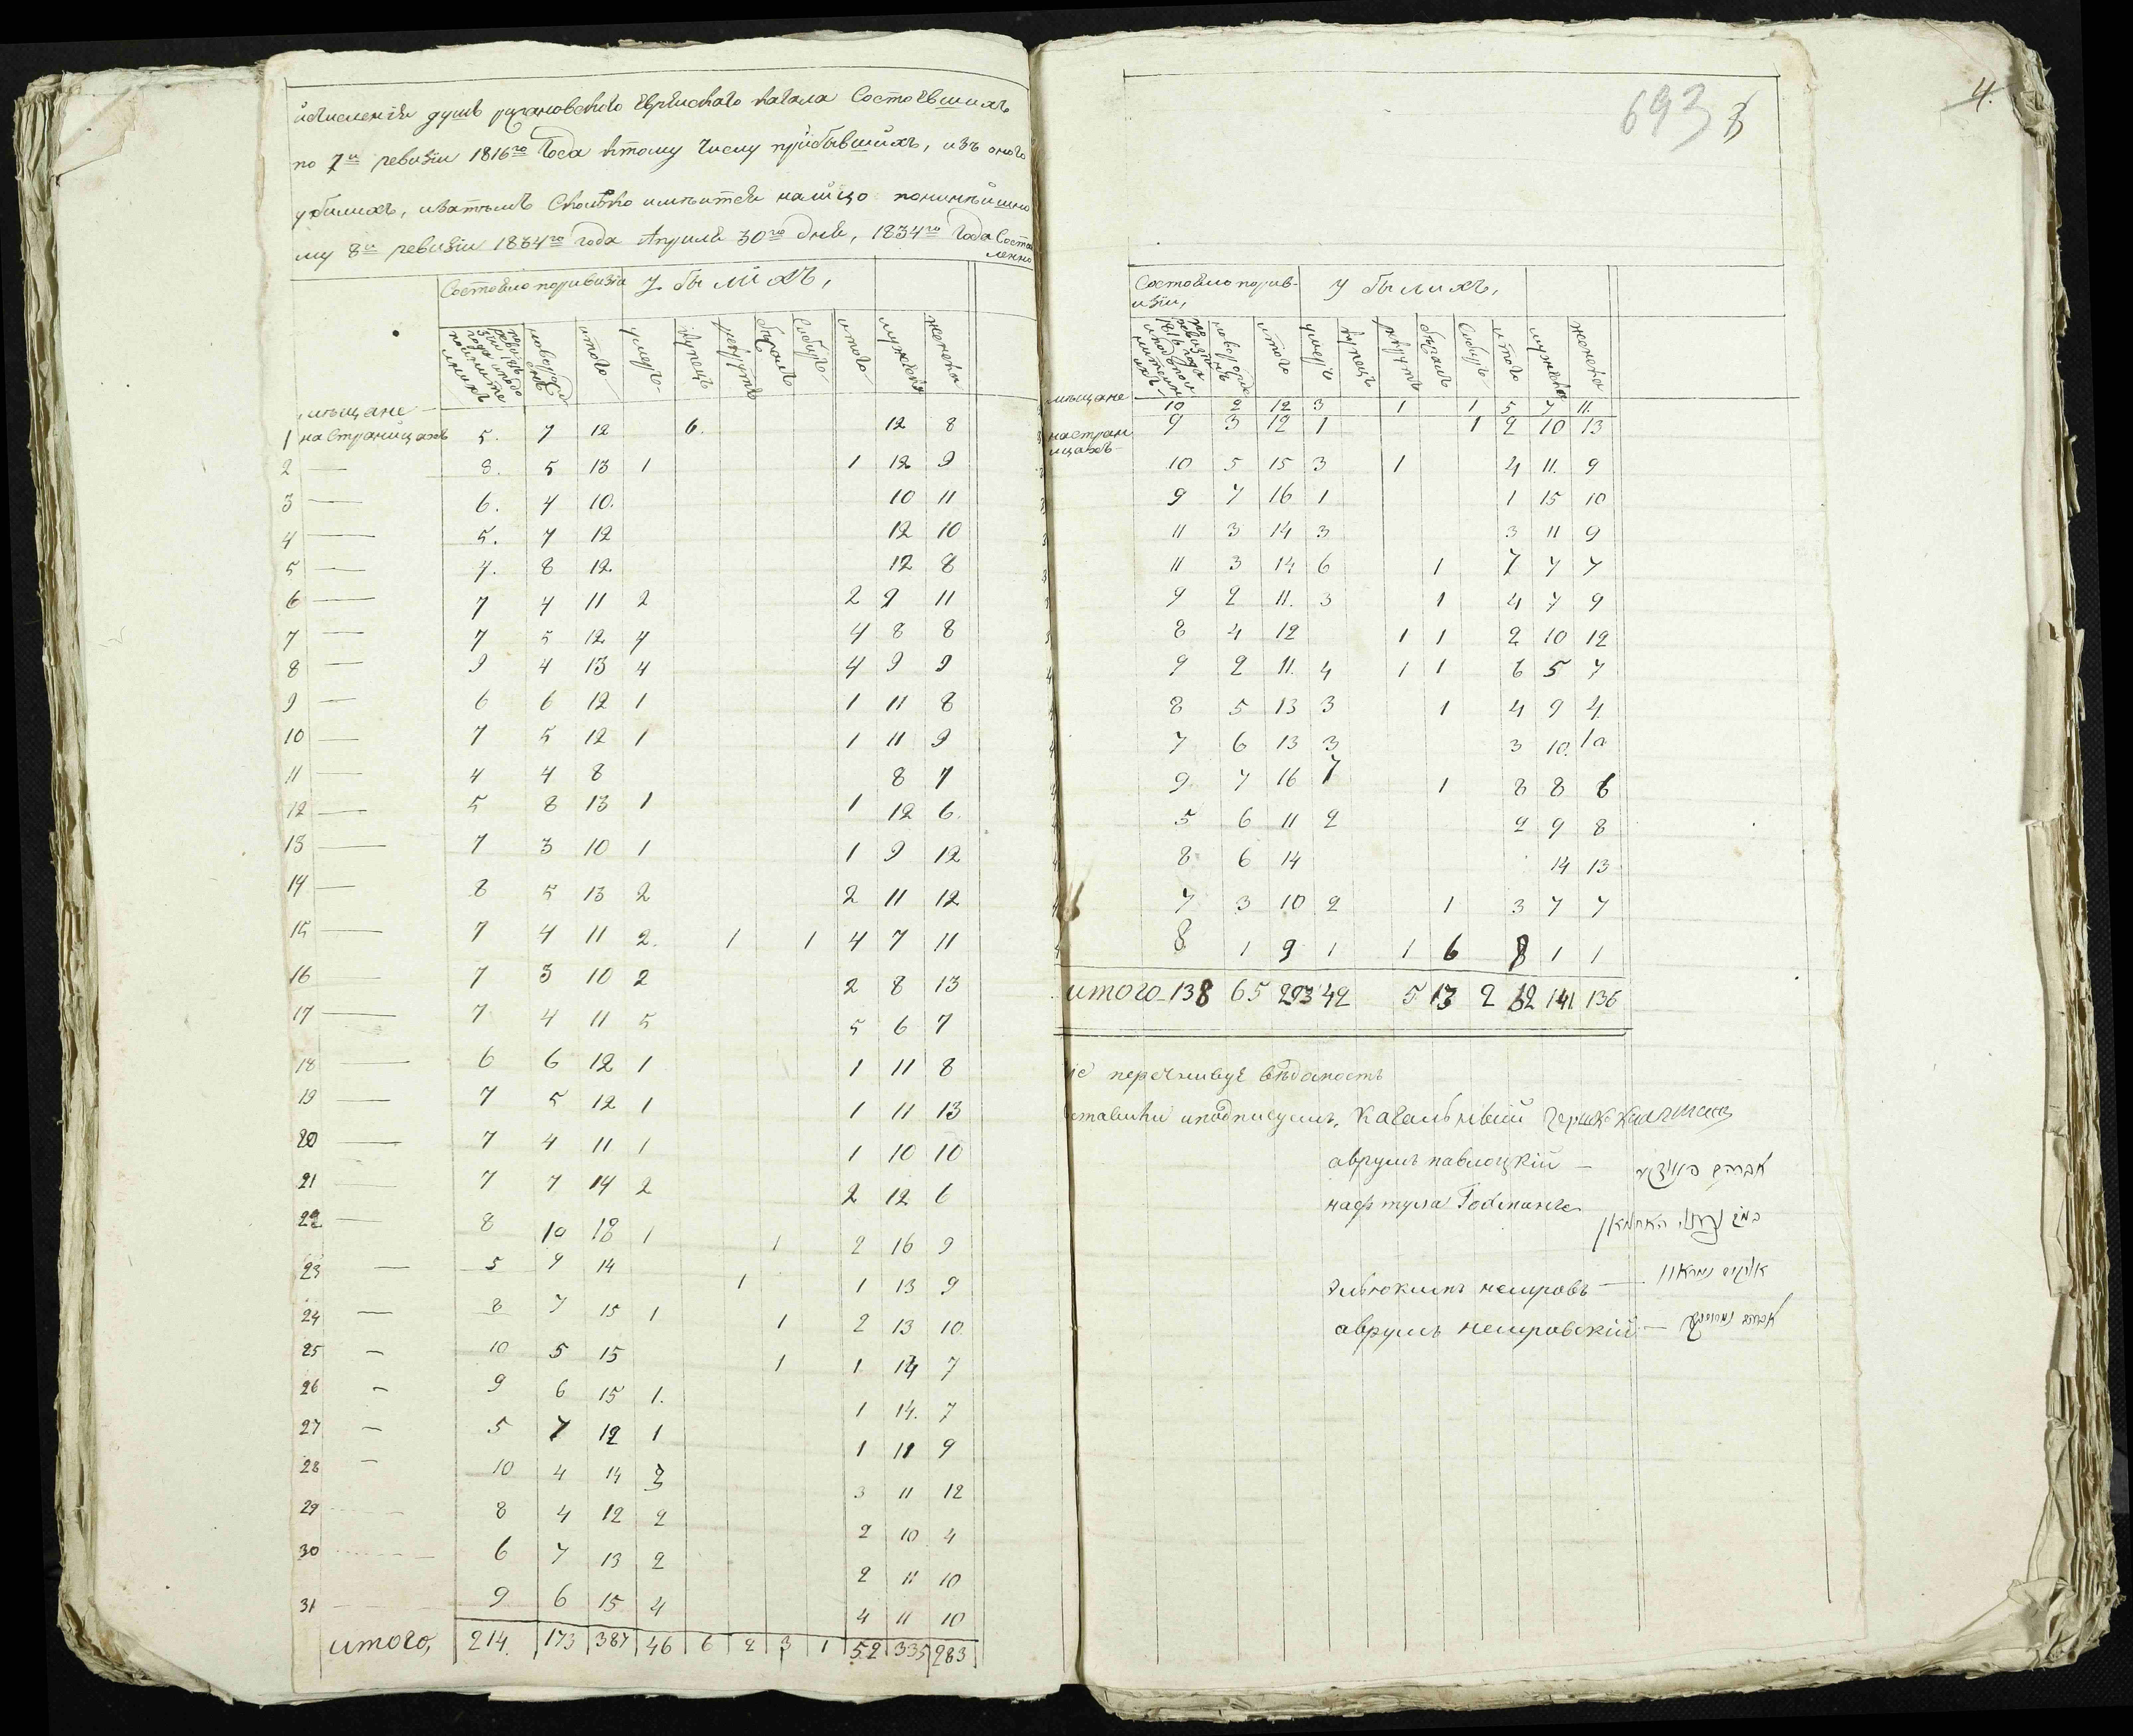 исчисление душъ рижановского еврейского кагала Состоевшихъ
по 7й ревизiи 1816го Года ктому числу прибывшихъ, изъ оного
убылихъ, изатѣмъ Сколько имѣитси налицо понинѣйшно
му 8й ревизiи 1834го года Априля 30го дня, 1834го Года Соста
вленно
Состояло поривизiи убылихъ,
новорожденихъ итого умеръ купецъ рекрутъ бѣгалъ Собулъ итого мужеска женска
мѣщане
1 на Страницахъ 5. 7 12 6. 12 8
2 — 8. 5 13 1 1 12 9
3 — 6. 4 10. 10 11
4 — 5. 7 12 12 10
5 — 4. 8 12 12 8
6 — 7 4 11 2 2 9 11
7 — 7 5 12 4 4 8 8
8 — 9 4 13 4 4 9 9
9 — 6 6 12 1 1 11 8
10 — 7 5 12 1 1 11 9
11 — 4 4 8 8 7
12 — 5 8 13 1 1 12 6.
13 — 7 3 10 1 1 9 12
14 — 8 5 13 2 2 11 12
15 — 7 4 11 2. 1 1 4 7 11
16 — 7 3 10 2 2 8 13
17 — 7 4 11 5 5 6 7
18 — 6 6 12 1 1 11 8
19 — 7 5 12 1 1 11 13
20 — 7 4 11 1 1 10 10
21 — 7 7 14 2 2 12 6
22 — 8 10 18 1 1 2 16 9
23 — 5 9 14 1 1 13 9
24 — 8 7 15 1 1 2 13 10
25 — 10 5 15 1 1 14 7
26 — 9 6 15 1. 1 14. 7
27 — 5 7 12 1 1 11 9
28 — 10 4 14 3 3 11 12
29 8 4 12 2 2 10 4
30 6 7 13 2 2 11 10
31 9 6 15 4 4 11 10
итого, 214. 173 387 46 6 2 3 1 52 335 283
693
4.
Состояло порив-
изiи, убылихъ,
итого умеръ купецъ рекрутъ бѣгалъ Собулъ итого мужеска женска
мѣщане 10 2 12 3 1 1 5 7 11.
на стран 9 3 12 1 1 2 10 13
ицахъ 10 5 15 3 1 4 11. 9
9 7 16 1 1 15 10
11 3 14 3 3 11 9
11 3 14 6 1 7 7 7
9 2 11. 3 1 4 7 9
8 4 12 1 1 2 10 12
9 2 11. 4 1 1 6 5 7
8 5 13 3 1 4 9 4
7 6 13 3 3 10. 10
9 7 16 7 1 8 8 6
5 6 11 2 2 9 8
8 6 14 14 13
7 3 10 2 1 3 7 7
8 1 9 1 1 6 8 1 1
итого 138 65 203 42 5 13 2 62 141 136
перечнивую вѣдомость
иподписуемъ, Кагальный
аврумъ павлоцкiй —
нафтула
немровъ —
аврумъ немровскiй —